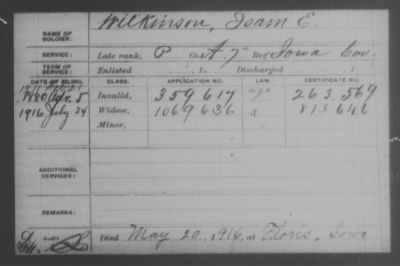 NAME OF SOLDIER: Wilkinson, Isam E.
SERVICE: Late rank, P Co. A, 7" Reg. Iowa Cav.
TERM OF SERVICE: Enlisted , 1 . Discharged , 1
DATE OF FILING. CLASS. APPLICATION NO. LAW. CERTIFICATE NO.
1880 Apr. 5 Invalid, 359617 263.569
1916 July 24 Widow, 1069636 a 813646
Minor,
ADDITIONAL SERVICES:
REMARKS:
Died May 20, 1916, at Floris, Iowa